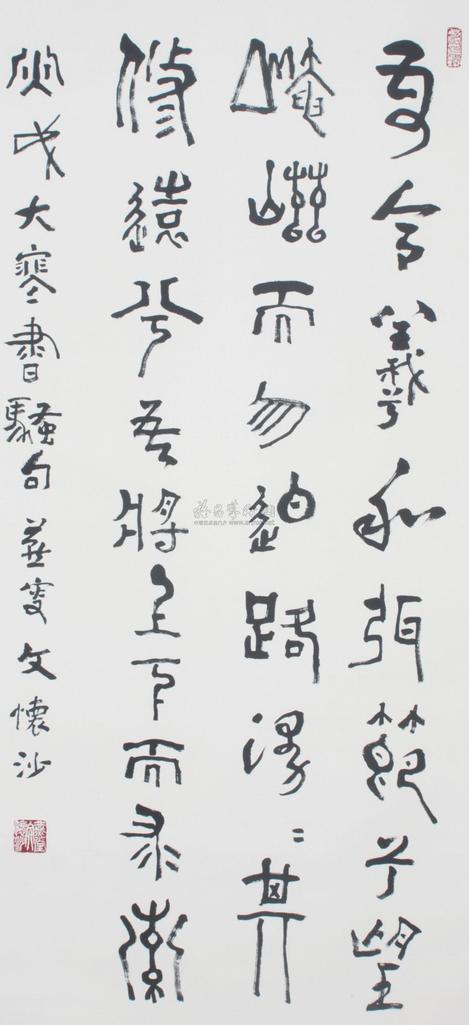 吾令羲和弭節兮望
崦嵫而勿迫路漫〻其
修遠兮吾將上下而求索
戌大寒書騷句燕叟文懷沙